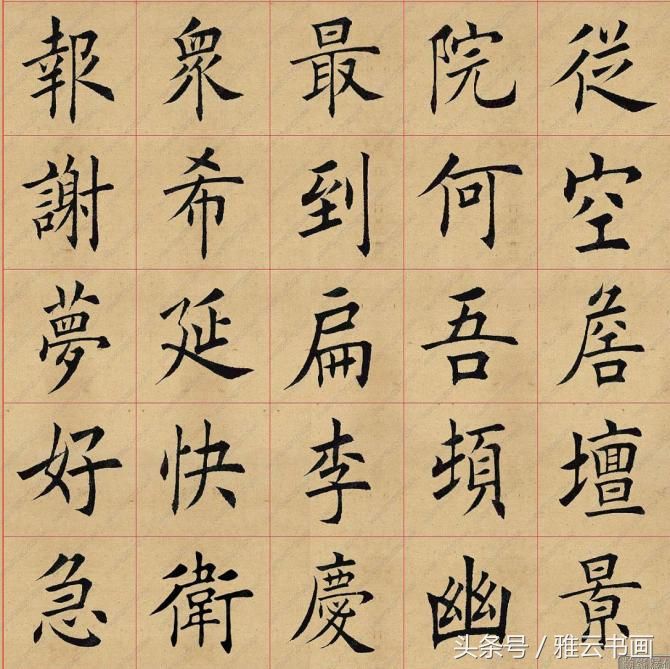 報眾最院從
謝希到何空
夢延扁吾詹
好快李頓壇
急衛慶幽景
头条号 / 雅云书画